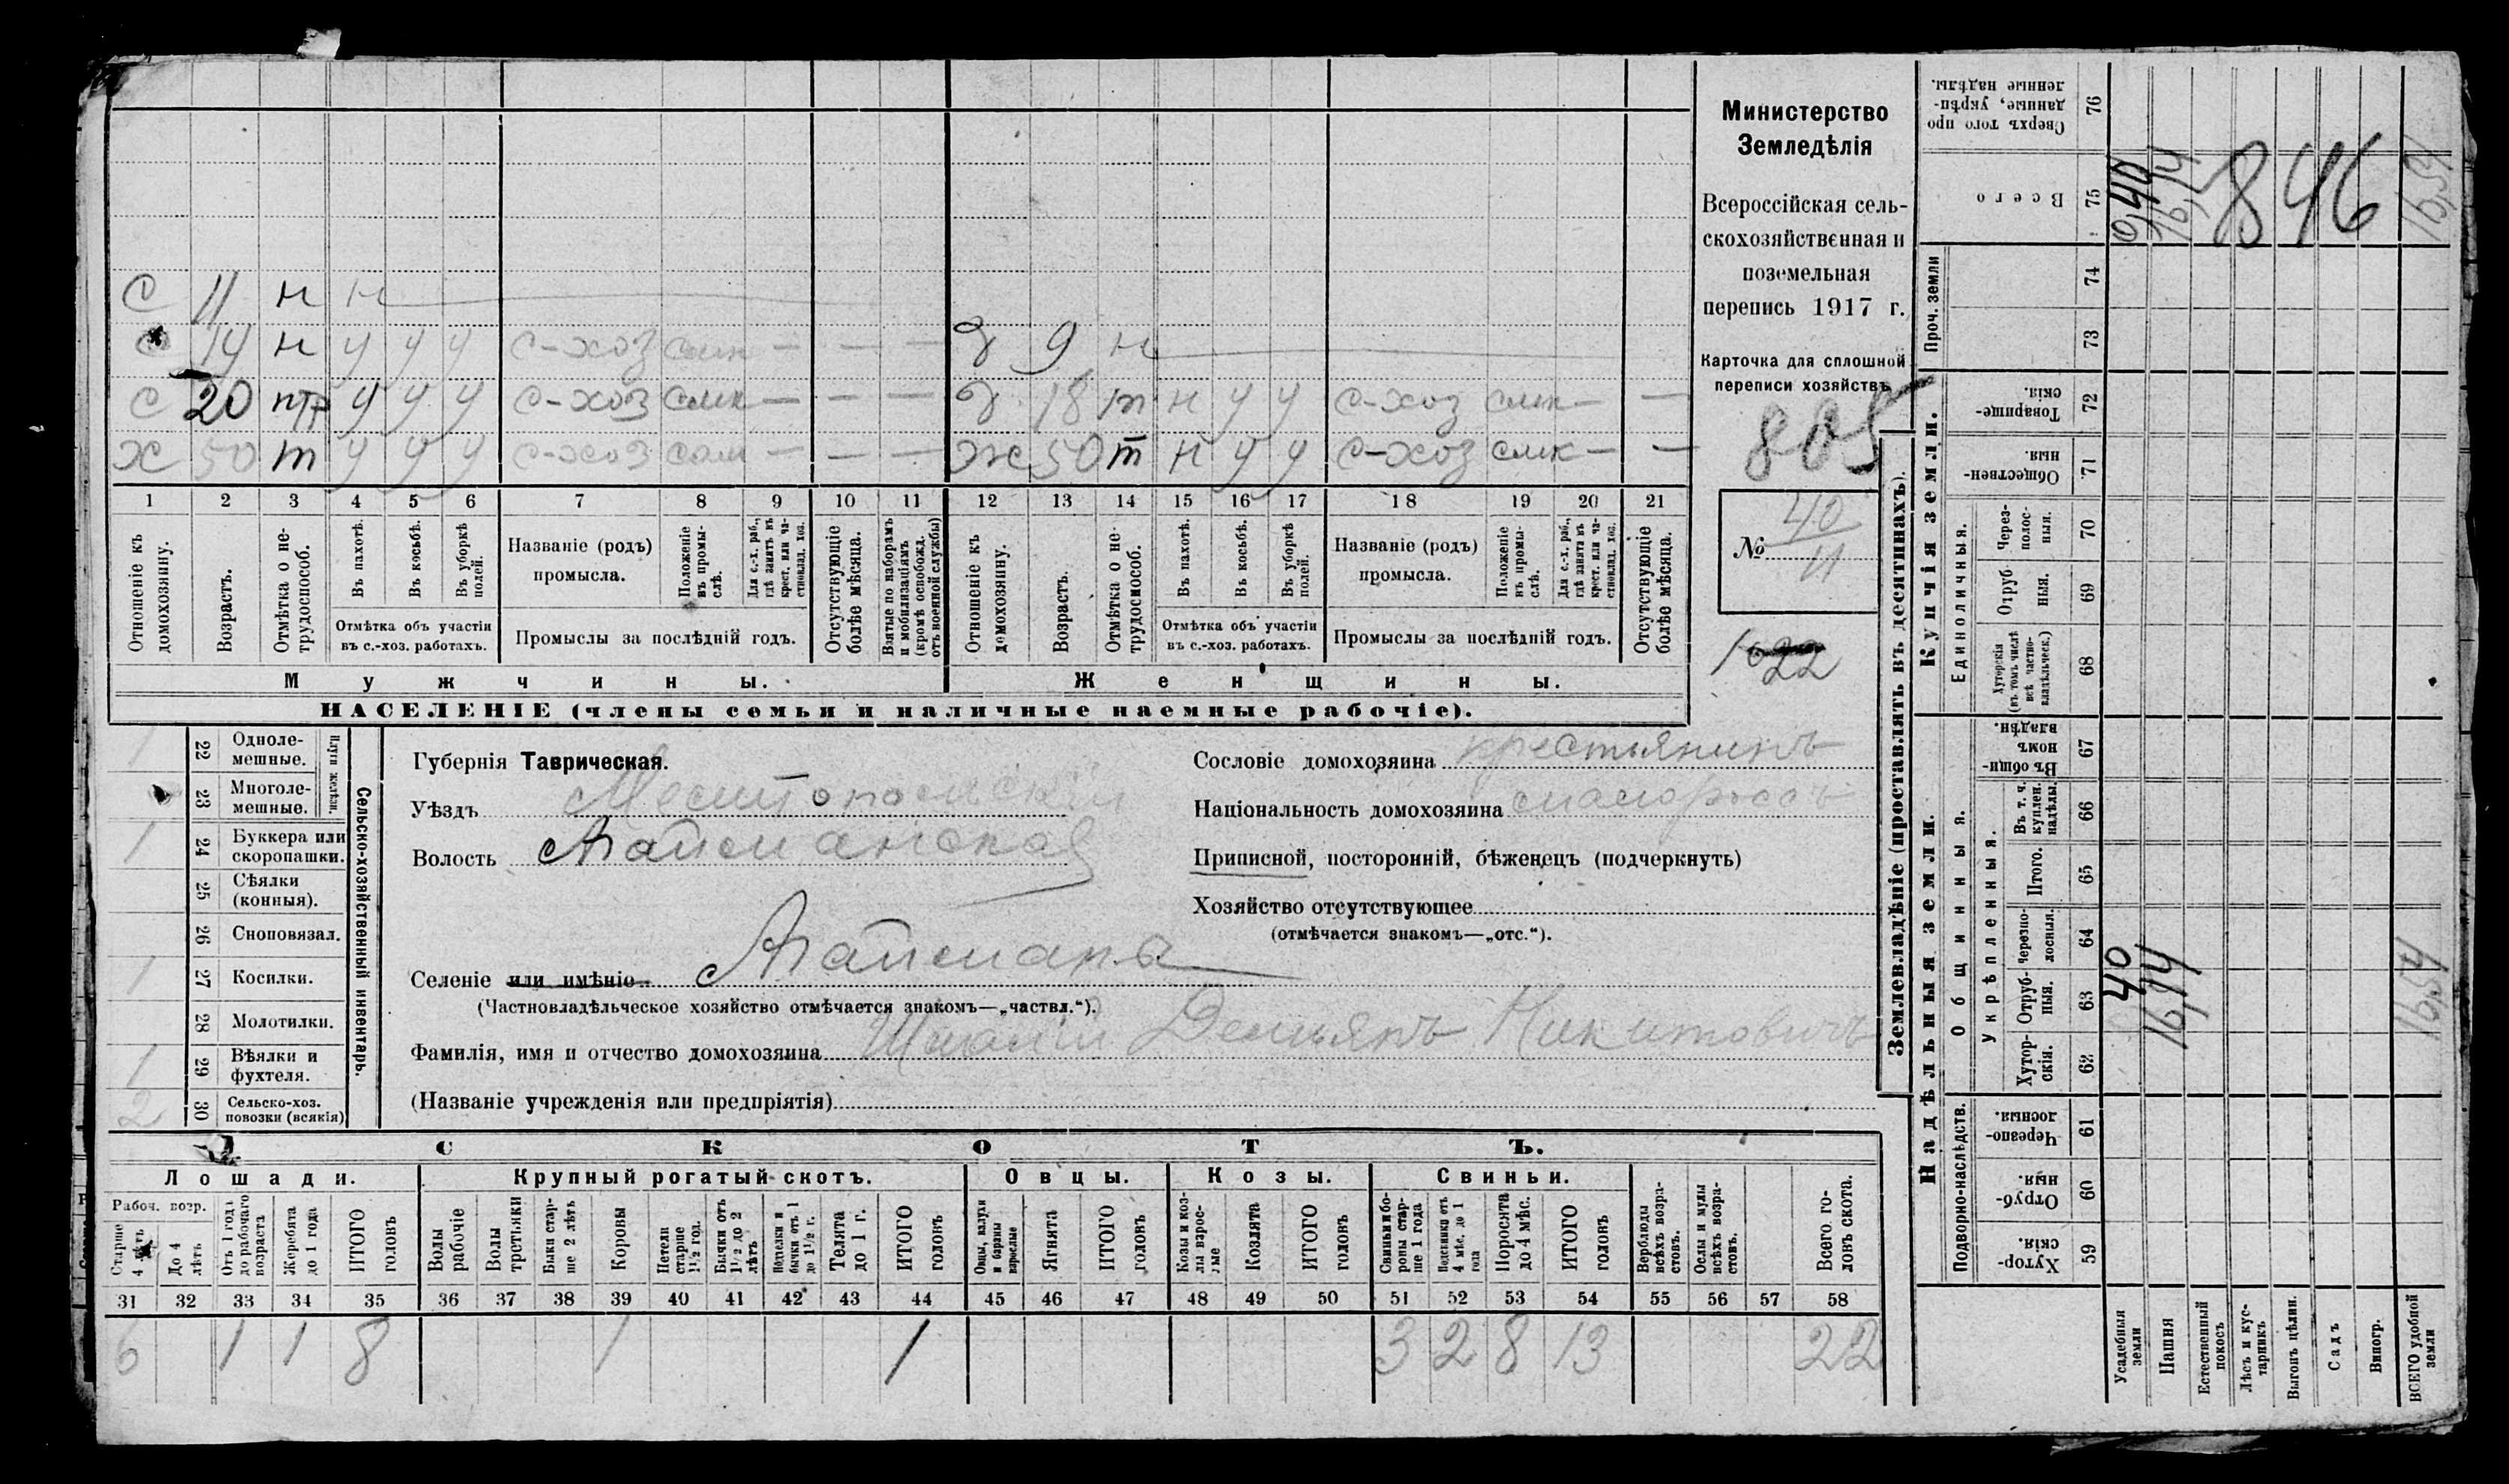 С 11 н н
С 14 н у у у с-хоз — — —
С 20 птр у у у с-хоз смк — — —
Х 50 т у у у с-хоз сам — — —
д 9 н
д 18 т н у у с-хоз смк — —
ж 50 т н у у с-хоз смк — —
1 2 3 4 5 6 7 8 9 10 11 12 13 14 15 16 17 18 19 20 21
Отношеніе къ домохозяину.
Возрастъ.
Отмѣтка о нетрудоспособ.
Въ пахотѣ.
Въ косьбѣ.
Въ уборкѣ полей.
Отмѣтка объ участіи
въ с.-хоз. работахъ.
Названіе (родъ)
промысла.
Положеніе въ промыслѣ.
Для с.-х. раб., гдѣ занятъ въ крест. или частновлад. хоз.
Промыслы за послѣдній годъ.
Отсутствующіе болѣе мѣсяца.
Взятые по наборамъ и мобилизаціямъ (кромѣ освобожд. отъ военной службы)
Отношеніе къ домохозяину.
Возрастъ.
Отмѣтка о нетрудоспособ.
Въ пахотѣ.
Въ косьбѣ.
Въ уборкѣ полей.
Отмѣтка объ участіи
въ с.-хоз. работахъ.
Названіе (родъ)
промысла.
Положеніе въ промыслѣ.
Для с.-х. раб., гдѣ занята въ крест. или частновлад. хоз.
Промыслы за послѣдній годъ.
Отсутствующіе болѣе мѣсяца.
Мужчины.
Женщины.
НАСЕЛЕНІЕ (члены семьи и наличные наемные рабочіе).
Министерство
Земледѣлія
Всероссійская сель-
скохозяйственная и
поземельная
перепись 1917 г.
Карточка для сплошной
переписи хозяйствъ
805
№ 40
11
1022
Сельско-хозяйственный инвентарь.
Плуги желѣзн.
1 22 Однолемешные.
23 Многолемешные.
1 24 Буккера или скоропашки.
25 Сѣялки (конныя).
26 Сноповязал.
1 27 Косилки.
28 Молотилки.
1 29 Вѣялки и фухтеля.
2 30 Сельско-хоз. повозки (всякія)
Губернія Таврическая.
Уѣздъ Мелитопольскій
Волость Агайманская
Селеніе или имѣніе Агайманъ
(Частновладѣльческое хозяйство отмѣчается знакомъ—„частвл.“).
Фамилія, имя и отчество домохозяина Демьянъ Никитовичъ
(Названіе учрежденія или предпріятія)
Сословіе домохозяина крестьянинъ
Національность домохозяина малороссъ
Приписной, посторонній, бѣженецъ (подчеркнуть)
Хозяйство отсутствующее
(отмѣчается знакомъ—„отс.“).
СКОТЪ.
Лошади. Крупный рогатый скотъ. Овцы. Козы. Свиньи.
Рабоч. возр.
Старше 4 лѣтъ
До 4 лѣтъ
Отъ 1 года до рабочаго возраста
Жеребята до 1 года
ИТОГО головъ
Волы рабочіе
Волы третьяки
Быки старше 2 лѣтъ
Коровы
Нетели старше 1½ год.
Бычки отъ 1½ до 2 лѣтъ
Подтелки и бычки отъ 1 до 1½ г.
Телята до 1 г.
ИТОГО головъ
Овцы, валухи и бараны взрослые
Ягнята
ИТОГО головъ
Козы и козлы взрослые
Козлята
ИТОГО головъ
Свиньи и боровы старше 1 года
Подсвинки отъ 4 мѣс. до 1 года
Поросята до 4 мѣс.
ИТОГО головъ
Верблюды всѣхъ возрастовъ.
Ослы и мулы всѣхъ возрастовъ.
Всего головъ скота.
31 32 33 34 35 36 37 38 39 40 41 42 43 44 45 46 47 48 49 50 51 52 53 54 55 56 57 58
6 1 1 8 1 1 3 2 8 13 22
Землевладѣніе (проставлять въ десятинахъ).
Купчія земли.
Надѣльныя земли.
Сверхъ того проданные, укрѣпленные надѣлы. 76
Всего 75
Проч. земли
74
73
Товарищескія. 72
Общественныя. 71
Единоличныя.
Черезполосныя. 70
Отрубныя. 69
Хуторскія (въ томъ числѣ всѣ частновладѣльческ.) 68
Общинныя.
Въ общинномъ владѣн. 67
Укрѣпленныя.
Въ т. ч. куплен. надѣлы. 66
Итого. 65
Черезполосныя. 64
Отрубныя. 63
Хуторскія. 62
Подворно-наслѣдств.
Черезполосныя. 61
Отрубныя. 60
Хуторскія. 59
Усадебныя земли
Пашня
Естественный покосъ
Лѣсъ и кустарникъ
Выгонъ цѣлин.
Садъ
Виногр.
ВСЕГО удобной земли
846